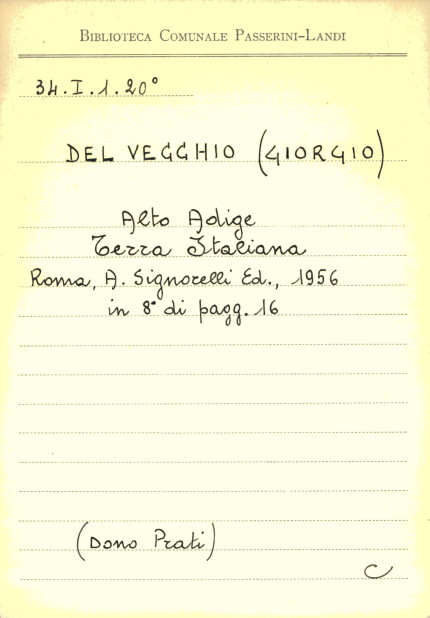 BIBLIOTECA COMUNALE PASSERINI-LANDI
34.I.1.20°
DEL VECCHIO (GIORGIO)
Alto Adige
Terra Italiana
Roma, A. Signorelli Ed., 1956
in 8° di pagg. 16
(Dono Prati)
C